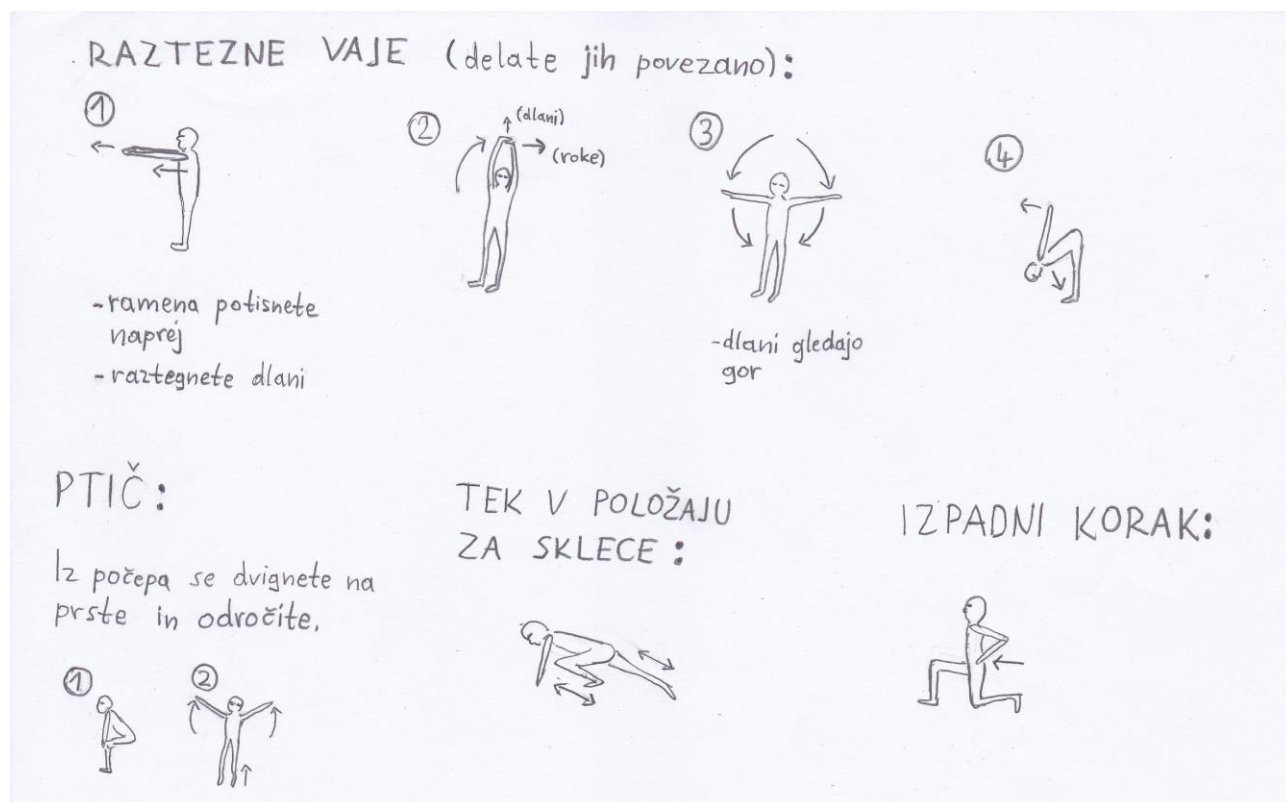 RAZTEZNE VAJE (delate jih povezano):
1
2
(dlani)
(roke)
3
4
-ramena potisnete
naprej
-raztegnete dlani
-dlani gledajo
gor
PTIČ:
Iz počepa se dvignete na
prste in odročite.
1
2
TEK V POLOŽAJU
ZA SKLECE:
IZPADNI KORAK: